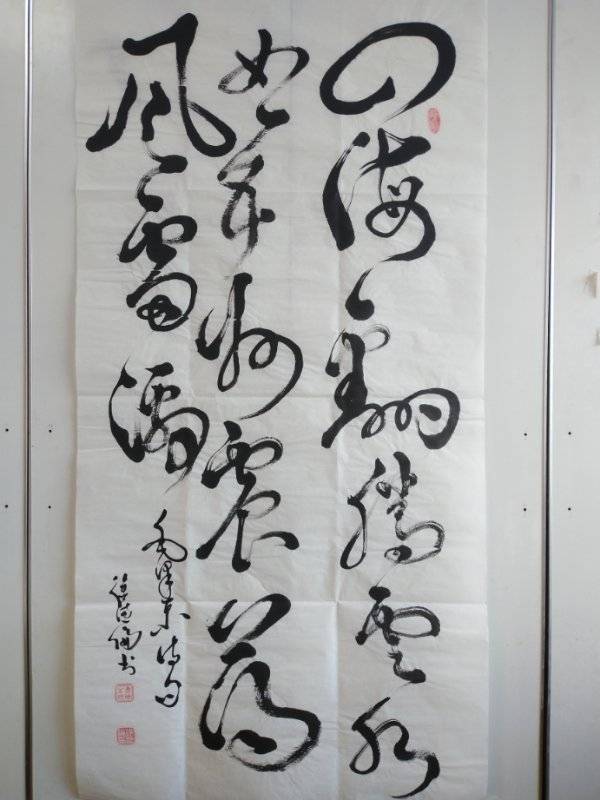 四海翻腾雲水
怒五洲震荡
风雷激
毛泽东诗句
书